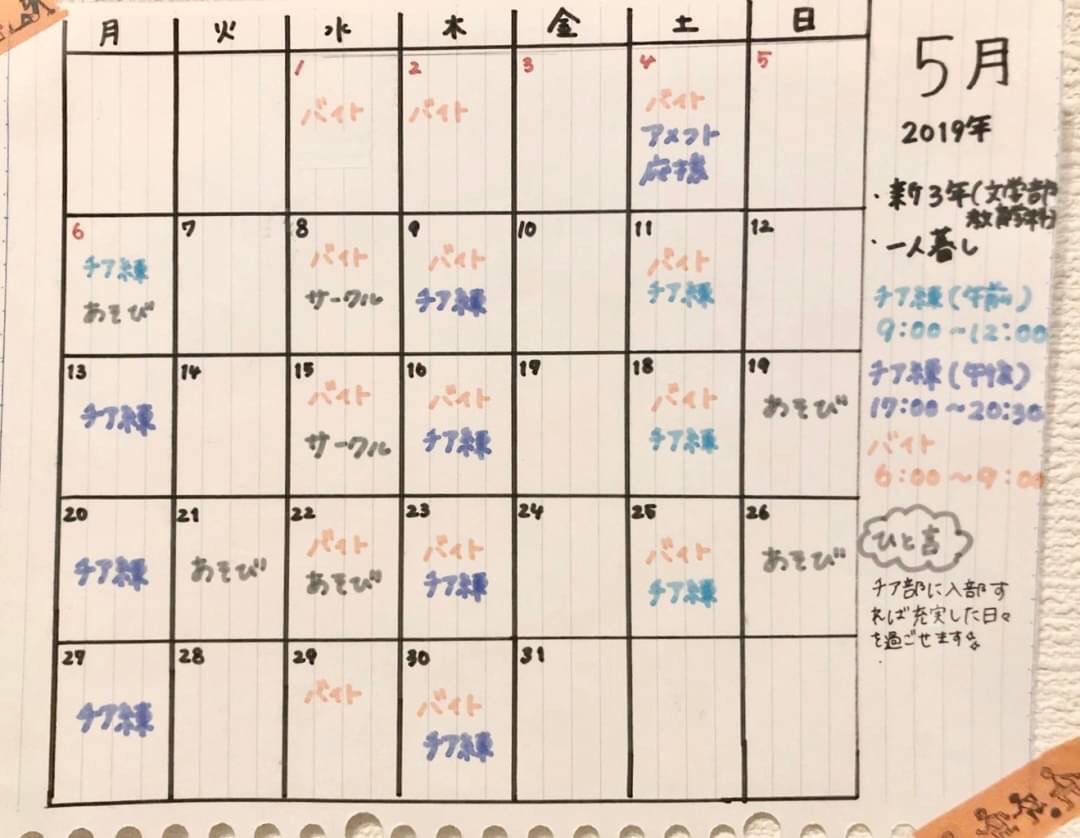 月 火 水 木 金 土 日
1 2 3 4 5
バイト バイト バイト
アメフト
応援
6 7 8 9 10 11 12
チア練 バイト バイト バイト
あそび サークル チア練 チア練
13 14 15 16 17 18 19
チア練 バイト バイト バイト あそび
サークル チア練 チア練
20 21 22 23 24 25 26
チア練 あそび バイト バイト バイト あそび
あそび チア練 チア練
27 28 29 30 31
チア練 バイト バイト
チア練
5月
2019年
・新3年(文学部
教育学科)
・一人暮し
チア練(午前)
9:00~12:00
チア練(午後)
17:00~20:30
バイト
6:00~9:00
ひと言
チア部に入部す
れば充実した日々
を過ごせます。